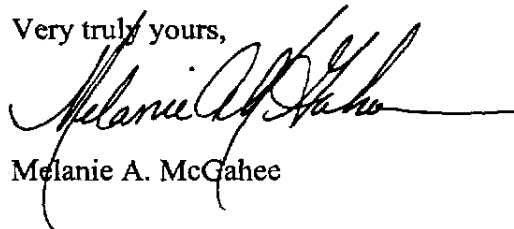 Very truly yours,
Melanie A. McGahee
Melanie A. McGahee